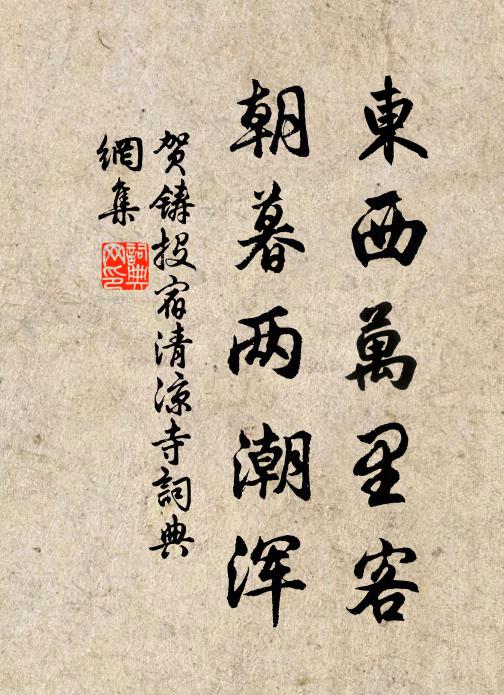 東西萬里客
朝暮两潮浑
贺鑄投宿清凉寺詞典
網集
詞典网印